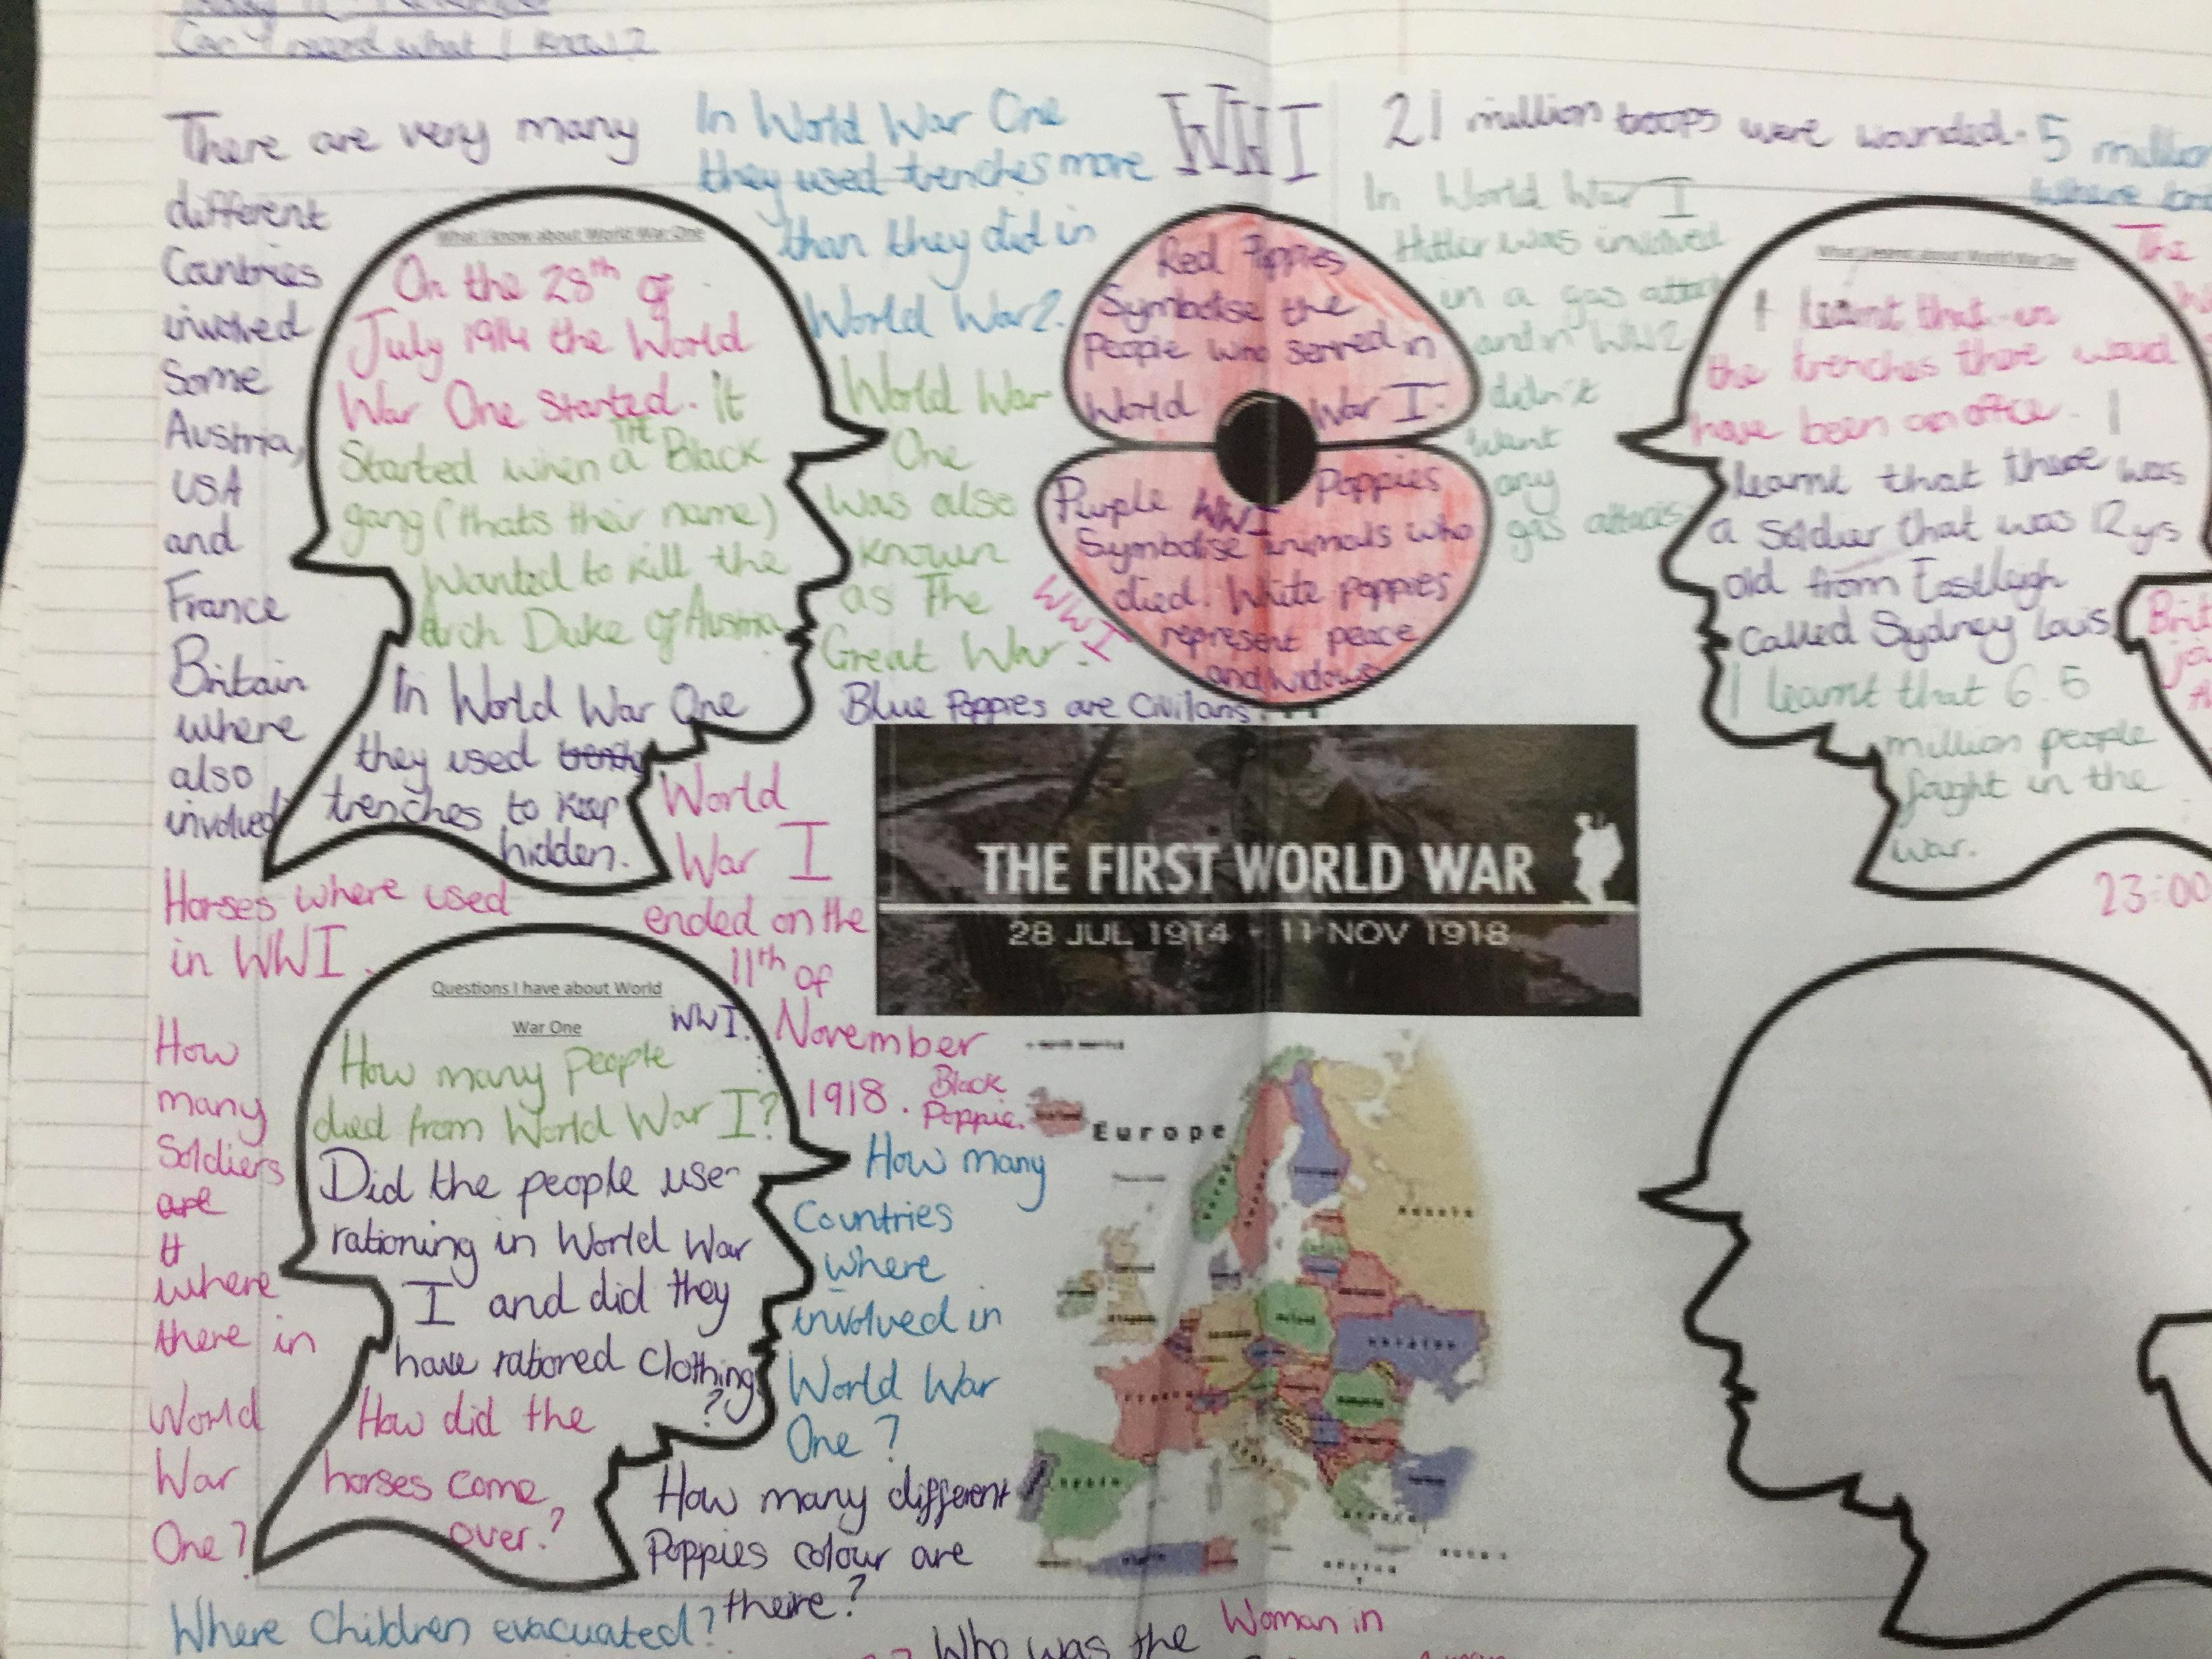 Can I record what I know?
There are very many
different
Countries
involved
Some
Austria,
USA
and
France
Britain
where
also
involved
Horses where used
in WWI.
How
many
Soldiers
are
where
there in
World
War
One?
Where Children evacuated?
What I know about World War One
On the 28th of
July 1914 the World
War One Started. It
Started when a The Black
gang (thats their name)
Wanted to kill the
Arch Duke of Austria
In World War One
they used
trenches to keep
hidden.
Questions I have about World
War One
How many people
died from World War I?
Did the people use
rationing in World War
I and did they
have rationed Clothing
?
How did the
horses come
over?
In World War One
they used trenches more
than they did in
World War 2.
World War
One
was also
known
as The
Great War.
Blue Poppies are Civilans.
World
War I
ended on the
11th of
November
1918.
WWI.
Black
Poppie.
How many
Countries
where
involved in
World War
One?
How many different
Poppies colour are
there?
WWI
Red Poppies
Symbolise the
People who served in
World War I.
Purple Poppies
WWI
Symbolise animals who
died. White poppies
represent peace
and widows
WWI
THE FIRST WORLD WAR
28 JUL 1914 - 11 NOV 1918
Europe
Russia
Ukraine
France
Spain
Who was the
Woman in
21 million troops were wounded.
5 million
In World War I
Hitler was involved
in a gas attack
and in WW2
didn't
want
any
gas attacks
What I learnt about World War One
I learnt that in
the trenches there woud
have been an office. I
learnt that there was
a Soldier that was 12 yrs
old from Eastleigh
Called Sydney Louis
I learnt that 6.5
million people
fought in the
war.
The
Brit
23:00